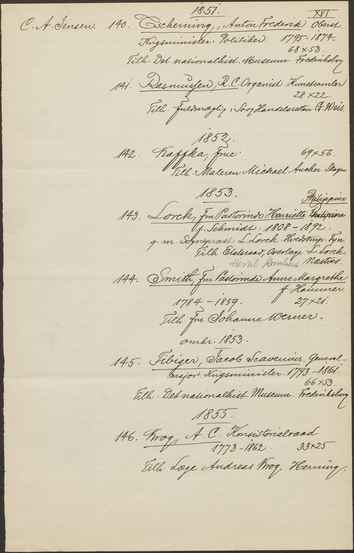 1851. XVI
C. A. Jensen 140. Tscherning, Anton Frederik Oberst
Krigsminister. Politiker 1795-1874.
68×53
Tilh. Det nationalhist. Museum Frederiksborg
141. Rasmussen, R. C. Organist Kunstsamler
28×22
Tilh. Fuldmægtig i Sø og Handelsretten
1852.
142. Kaffka, Frue 69×56
Tilh. Maleren Michael Ancher Skagen
1853.
Philippine
143. Lorck, Fru Pastorinde Henriette
f. Schmidt. 1808-1892.
Tilh. Etatsraad,
Næstved
144. Smith, Fru Pastorinde Anne Margrethe
f Hammer
1784-1859. 27×21.
Tilh. Fru Johanne Werner.
omkr. 1853.
145. Fibiger, Jacob Scavenius, General-
major Krigsminister 1793-1861
66×53
Tilh. Det nationalhist Museum Frederiksborg
1855.
146. Krog, A C Konsistorialraad
1773-1862 33×25
Tilh. Læge Andreas Krog, Herning.